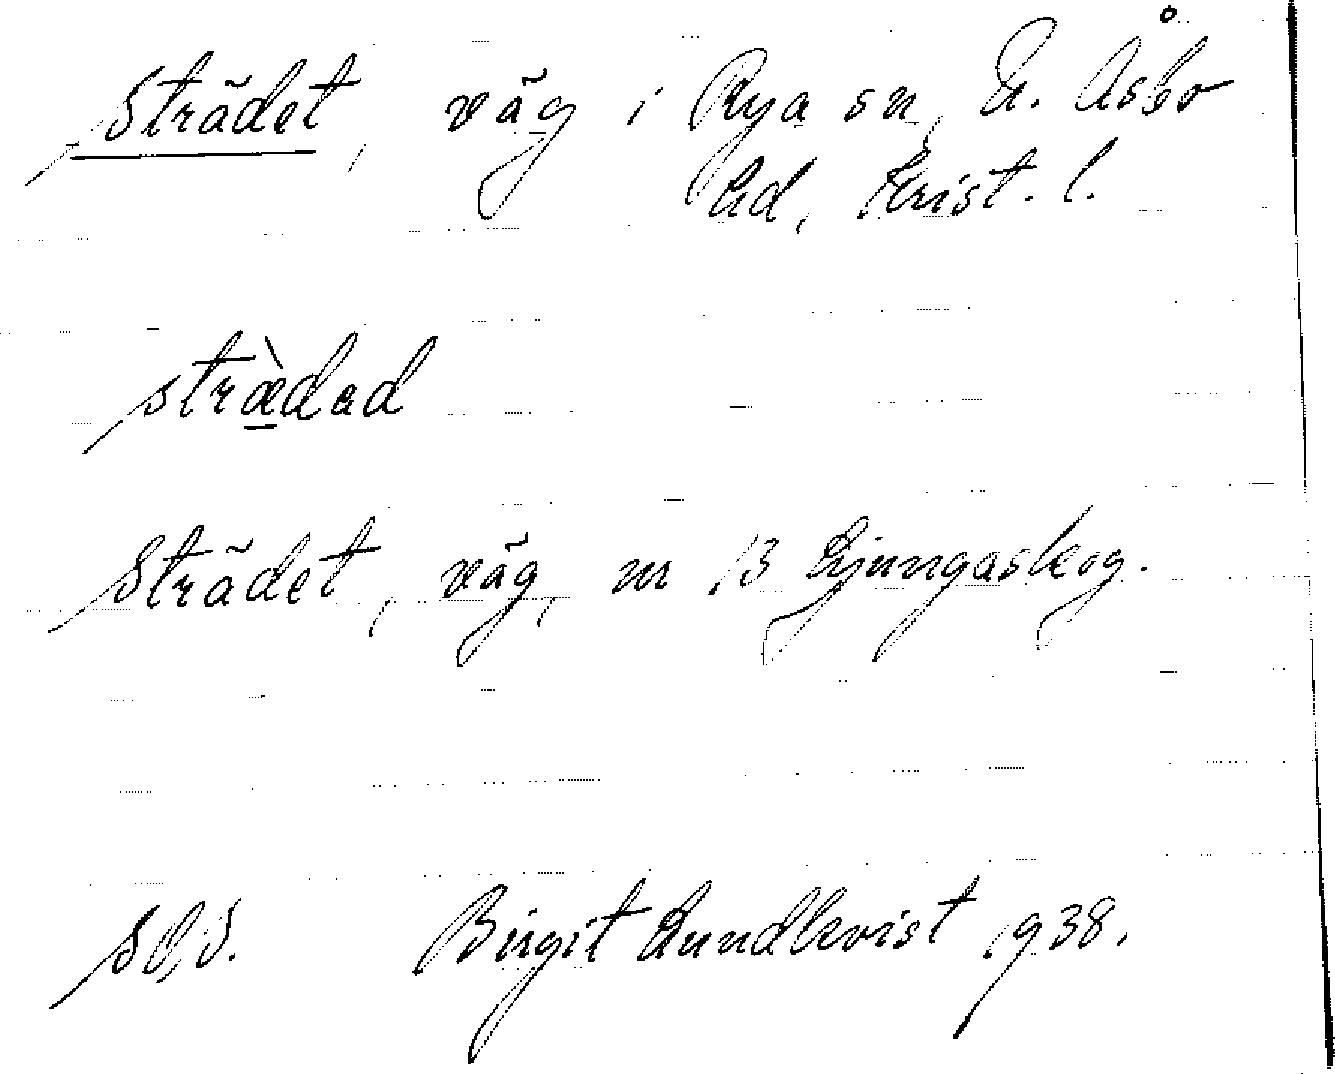 Strädet, väg i Rya sn, N. Åsbo
hd, Krist. l.
stræ̀dad
Strädet, väg, nr 13 Ljungaskog.
S.O.S. Birgit Lundkvist 1938.